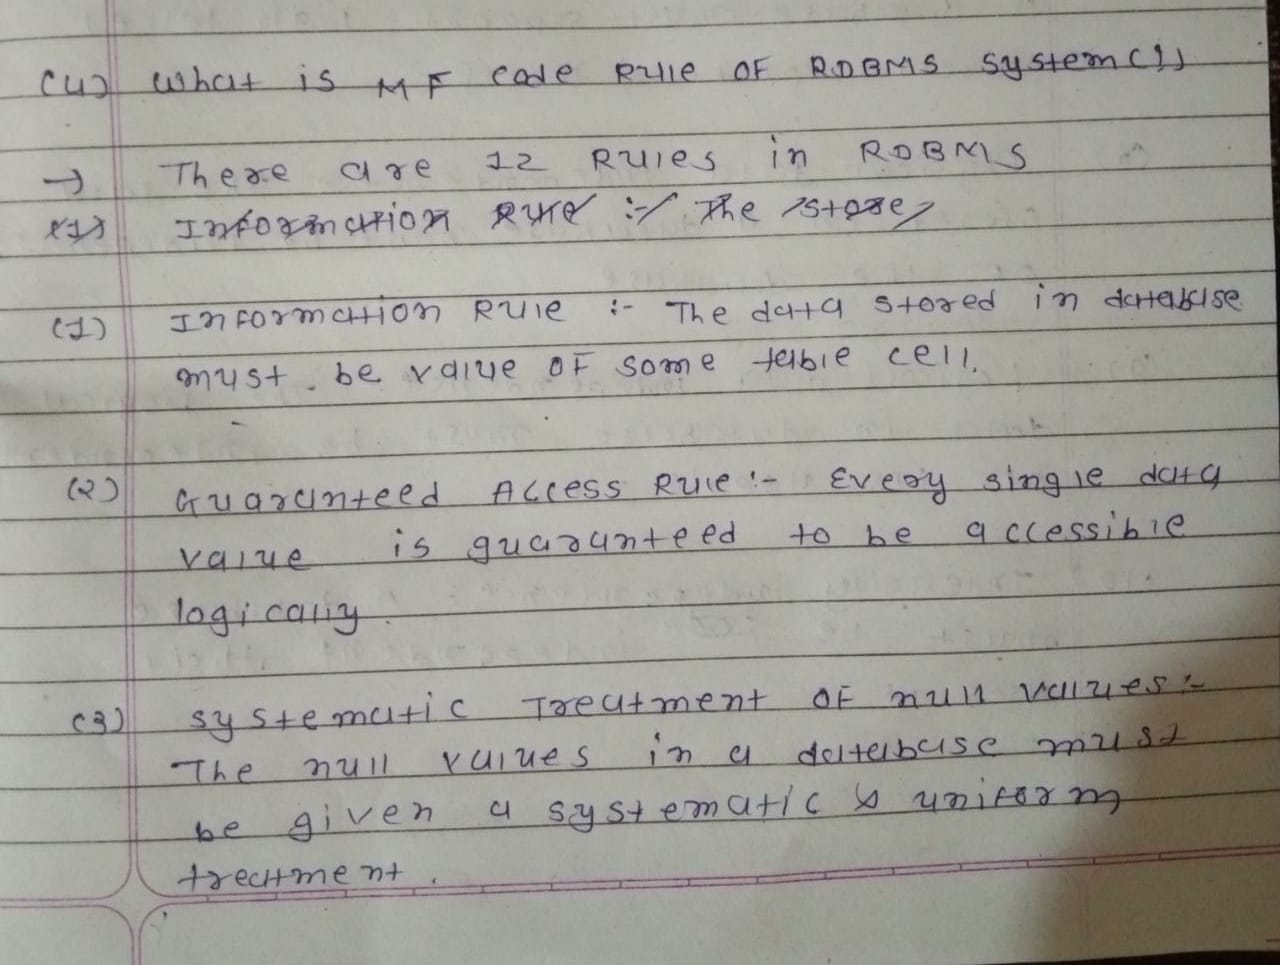 (4) What is MF code Rule OF RDBMS system (1)
→ There are 12 Rules in RDBMS
(1) Information Rule :- The store
(1) Information Rule :- The data stored in database
must be value of some table cell.
(2) Guaranteed Access Rule :- Every single data
value is guaranteed to be accessible
logically.
(3) systematic Treatment OF null values :-
The null values in a database must
be given a systematic & uniform
treatment.